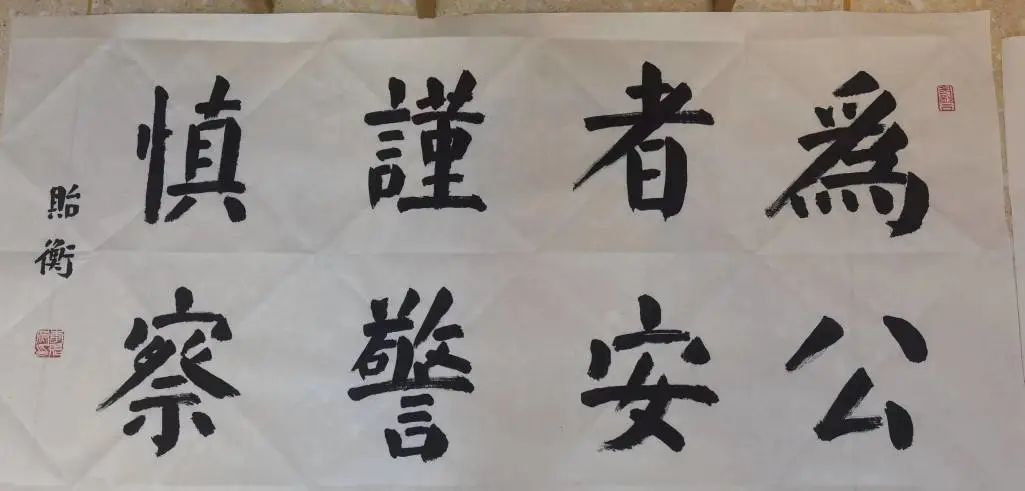 爲者謹慎
公安警察
貽衡